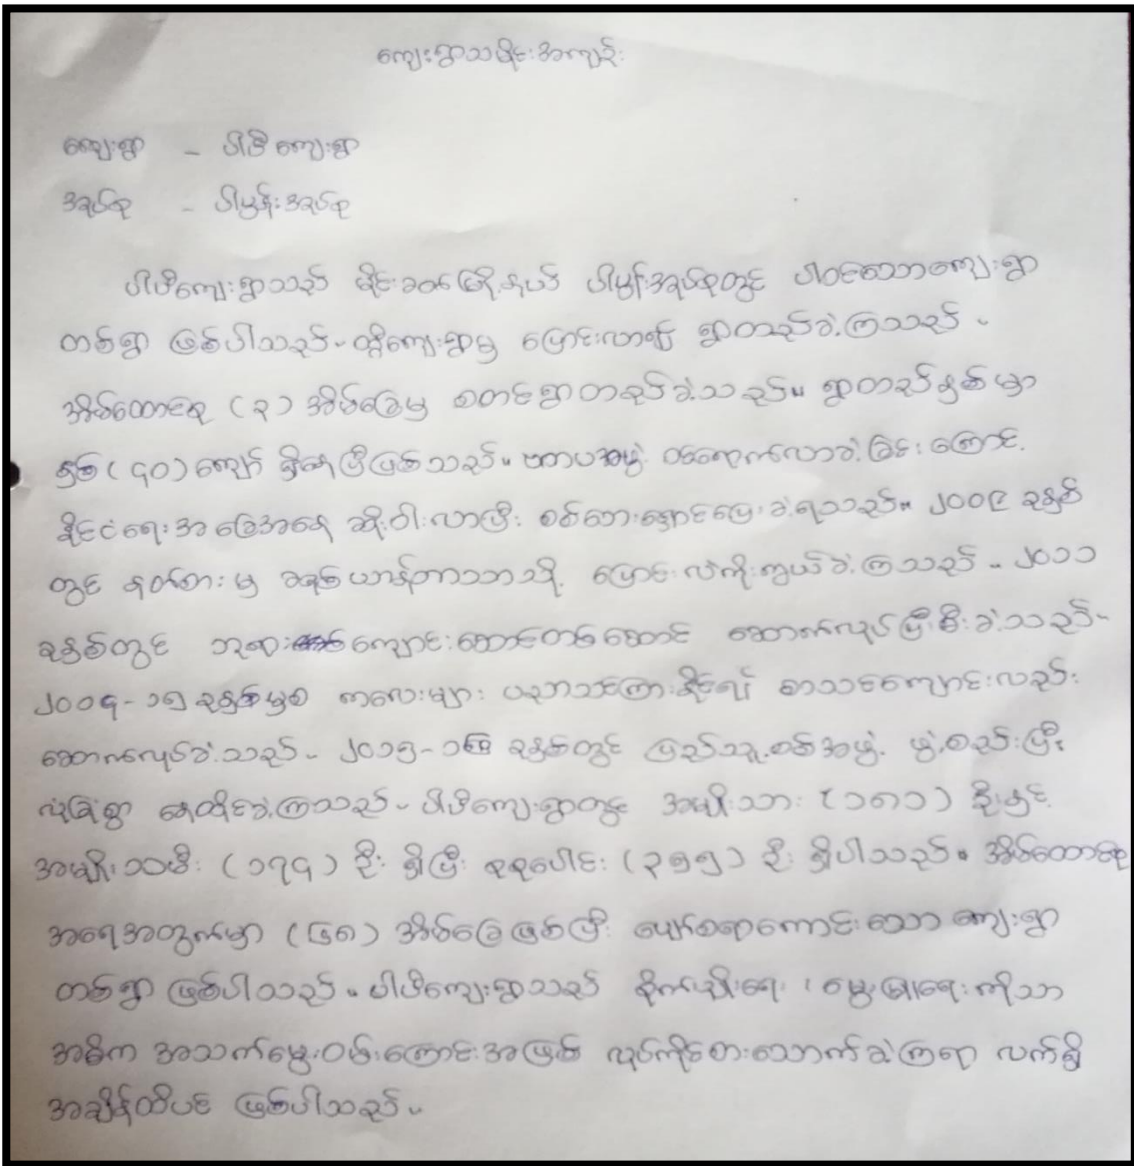 ကျေးရွာသမိုင်းအကျဉ်း
ကျေးရွာ - ပါဖီကျေးရွာ
အုပ်စု - ပါမွန်းအုပ်စု
ပါဖီကျေးရွာသည် မိုင်းခတ်မြို့နယ် ပါမွန်းအုပ်စုတွင် ပါဝင်သောကျေးရွာ
တစ်ရွာ ဖြစ်ပါသည်။ ကျေးရွာမှ ပြောင်းလာ၍ ရွာတည်ခဲ့ကြသည်။
အိမ်ထောင်စု (၃) အိမ်ခြေမှ စတင်ရွာတည်ခဲ့သည်။ ရွာတည်နှစ်မှာ
နှစ် (၄၀) ကျော် ရှိနေပြီဖြစ်သည်။ ဗကပအဖွဲ့ ဝင်ရောက်လာခဲ့ခြင်းကြောင့်
နိုင်ငံရေးအခြေအနေ ဆိုးဝါးလာပြီး စစ်ဘေးရှောင်ပြေးခဲ့ရသည်။ ၂၀၀၉ ခုနှစ်
တွင် နတ်စားမှ ခရစ်ယာန်ဘာသာသို့ ပြောင်းလဲကိုးကွယ်ခဲ့ကြသည်။ ၂၀၁၁
ခုနှစ်တွင် ဘုရားကျောင်းဆောင်တစ်ဆောင် ဆောက်လုပ်ပြီးစီးခဲ့သည်။
၂၀၀၄-၁၅ ခုနှစ်မှစ ကလေးများ ပညာသင်ကြားနိုင်ရန် စာသင်ကျောင်းလည်း
ဆောက်လုပ်ခဲ့သည်။ ခုနှစ်တွင် ပြည်သူ့စစ်အဖွဲ့ ဖွဲ့စည်းပြီး
လုံခြုံစွာ နေထိုင်ခဲ့ကြသည်။ ပါဖီကျေးရွာတွင် အမျိုးသား (၁၈၁) ဦးနှင့်
အမျိုးသမီး (၁၇၄) ဦး ရှိပြီး စုစုပေါင်း (၃၅၅) ဦး ရှိပါသည်။ အိမ်ထောင်စု
အရေအတွက်မှာ (၆၈) အိမ်ခြေဖြစ်ပြီး ပျော်စရာကောင်းသော ကျေးရွာ
တစ်ရွာ ဖြစ်ပါသည်။ ပါဖီကျေးရွာသည် စိုက်ပျိုးရေး၊ မွေးမြူရေးကိုသာ
အဓိက အသက်မွေးဝမ်းကြောင်းအဖြစ် လုပ်ကိုင်စားသောက်ခဲ့ကြရာ လက်ရှိ
အချိန်ထိပင် ဖြစ်ပါသည်။